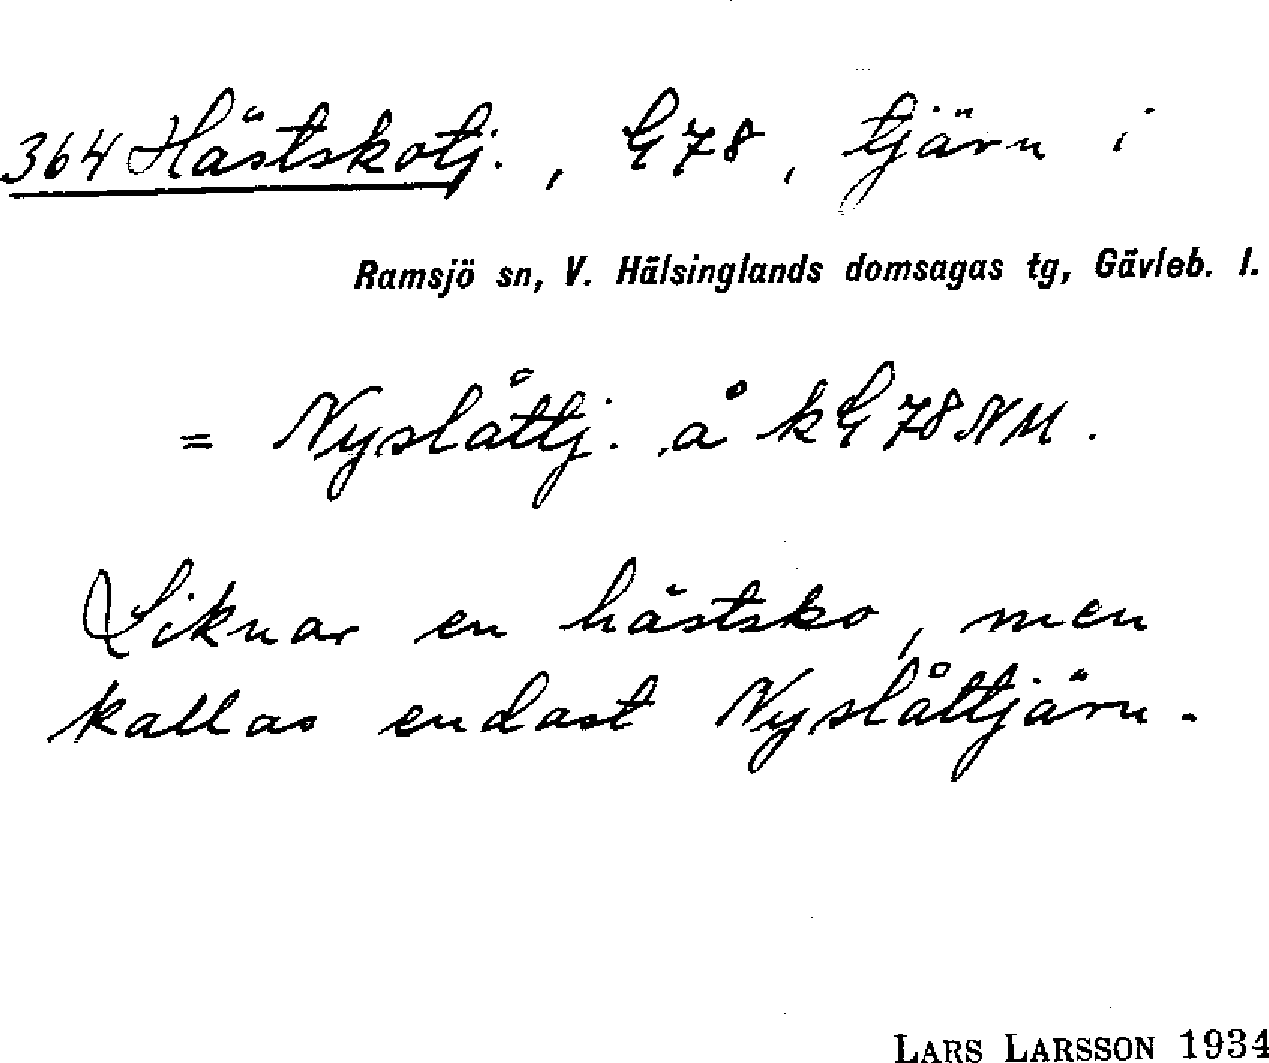 364 Hästskotj., G78, tjärn i
Ramsjö sn, V. Hälsinglands domsagas tg, Gävleb. l.
= Nyslåttj. å kG78NM.
Liknar en hästsko, men
kallas endast Nyslåttjärn.
LARS LARSSON 1934